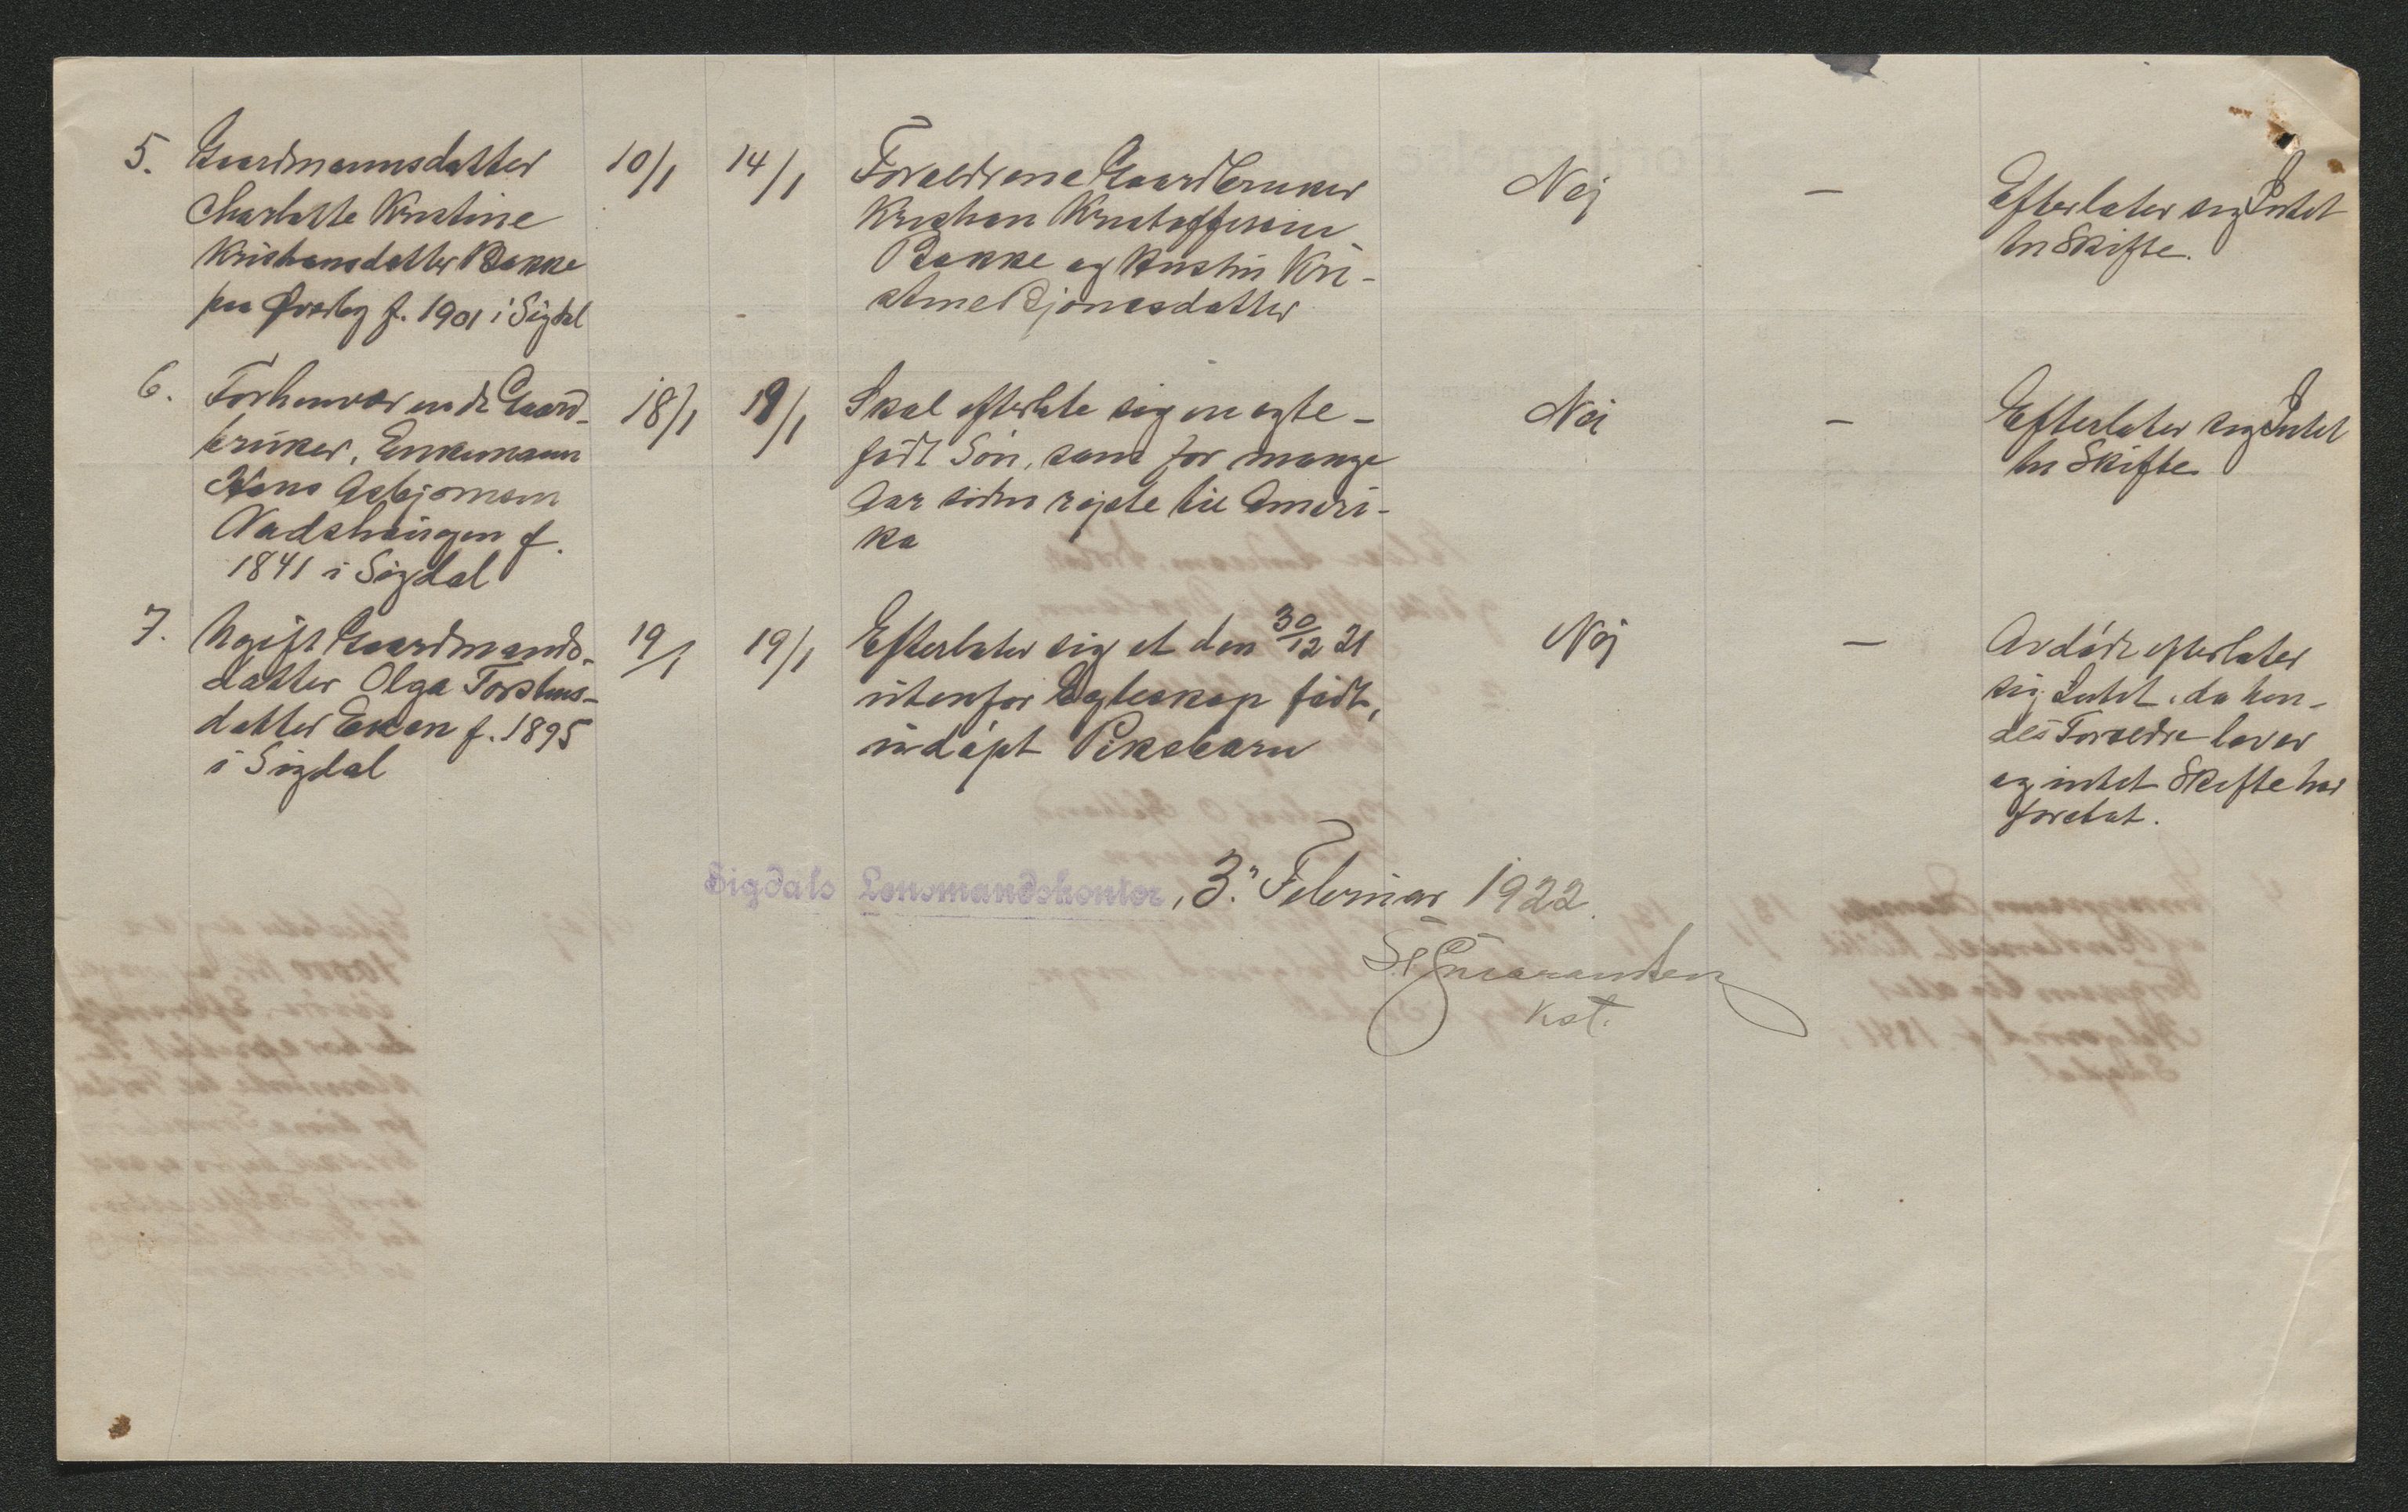 5.
Gaardmannsdatter
Charlotte Kristine
Kristiansdatter Bakke
paa Øvreby f. 1901 i Sigdal
10/1
14/1
Forældrene Gaardbruker
Kristian Kristoffersen
Bakke og Kristin Kri-
stine Bjønesdatter
Nej
—
Efterlater sig Intet
til Skifte.
6.
Forhenværende Gaard-
bruker, Enkemann
Hans Asbjørnsen
f.
1841 i Sigdal
18/1
19/1
Skal efterlate sig en egte-
født Søn, som for mange
Aar siden rejste til Ameri-
ka
Nei
—
Efterlater sig Intet
til Skifte
7.
Ugift Gaardmands-
datter Olga Torstens-
datter Eken f. 1895
i Sigdal
19/1
19/1
Efterlater sig et den 30/12 21
utenfor Egteskap født,
udøpt Pikebarn
Nej
—
Avdøde efterlater
sig Intet, da hen-
des Forældre lever
og intet Skifte har
foretat.
Sigdals Lensmandskontor, 3. Februar 1922.
kst.